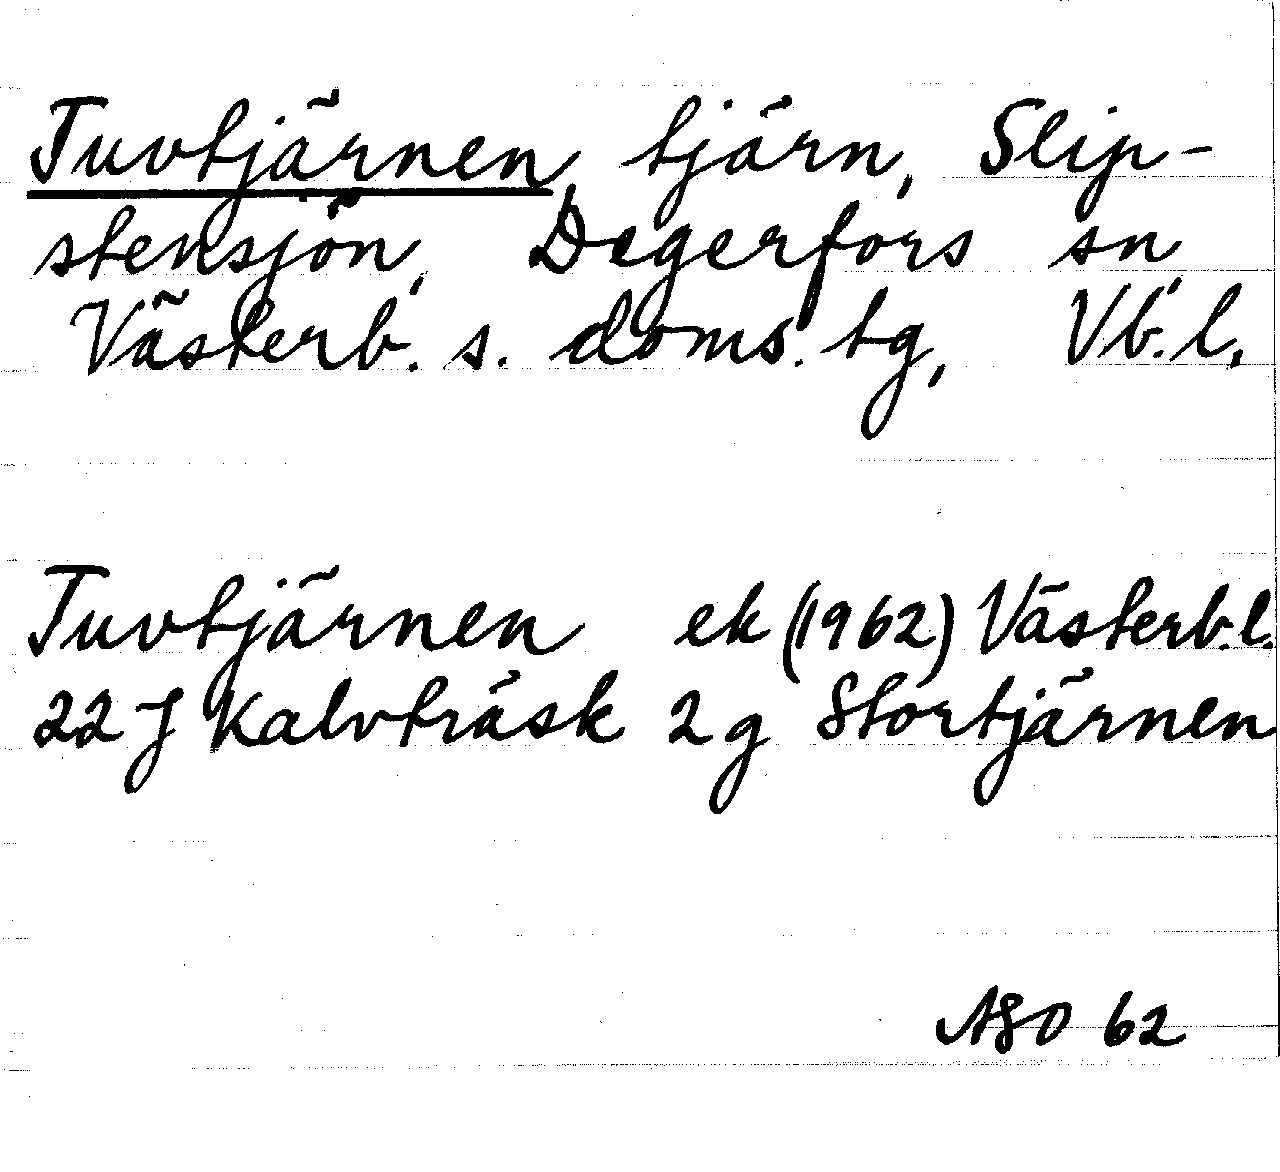 Tuvtjärnen, tjärn, Slip-
stensjön, Degerfors sn,
Västerb. s. doms. tg, Vb. l.
Tuvtjärnen ek (1962) Västerb. l.
22 J Kalvträsk 2 g Stortjärnen
ASO 62